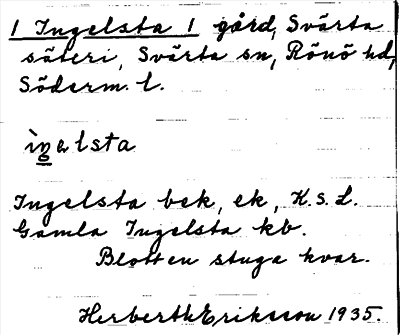 1 Ingelsta 1 gård, Svärta
säteri, Svärta sn, Rönö hd,
Söderm. l.
ìngalsta
Ingelsta bek, ek, K. s. L.
Gamla Ingelsta kb.
Blott en stuga kvar.
Herberth Eriksson 1935.